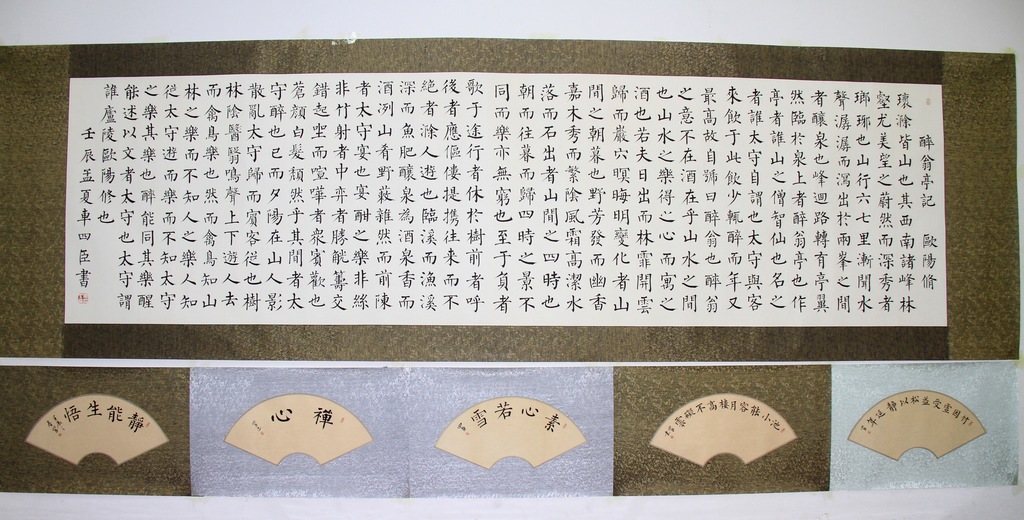 醉翁亭記 歐陽脩
環滁皆山也其西南諸峰林
壑尤美望之蔚然而深秀者
瑯琊也山行六七里漸聞水
聲潺潺而瀉出於兩峯之間
者釀泉也峰迴路轉有亭翼
然臨於泉上者醉翁亭也作
亭者誰山之僧智仙也名之
者誰太守自謂也太守與客
來飲于此飲少輒醉而年又
最高故自號曰醉翁也醉翁
之意不在酒在乎山水之間
也山水之樂得之心而寓之
酒也若夫日出而林霏開雲
歸而巖穴暝晦明變化者山
間之朝暮也野芳發而幽香
嘉木秀而繁陰風霜高潔水
落而石出者山間之四時也
朝而往暮而歸四時之景不
同而樂亦無窮也至于負者
歌于途行者休於樹前者呼
後者應傴僂提攜往來而不
絕者滁人遊也臨溪而漁溪
深而魚肥釀泉為酒泉香而
酒洌山肴野蔌雜然而前陳
者太守宴也宴酣之樂非絲
非竹射者中弈者勝觥籌交
錯起坐而喧嘩者衆賓歡也
蒼顏白髮頹然乎其間者太
守醉也已而夕陽在山人影
散亂太守歸而賓客從也樹
林陰翳鳴聲上下遊人去
而禽鳥樂也然而禽鳥知山
林之樂而不知人之樂人知
從太守遊而樂而不知太守
之樂其樂也醉能同其樂醒
能述以文者太守也太守謂
誰廬陵歐陽修也
壬辰孟夏車四臣書
竹因虛受益松以靜延年
池小能容月樓高不礙雲
素心若雪
禪心
靜能生悟